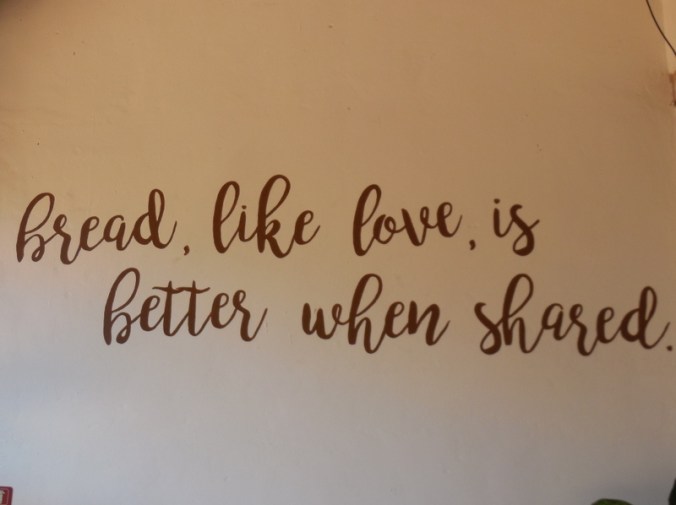 bread, like love, is
better when shared.